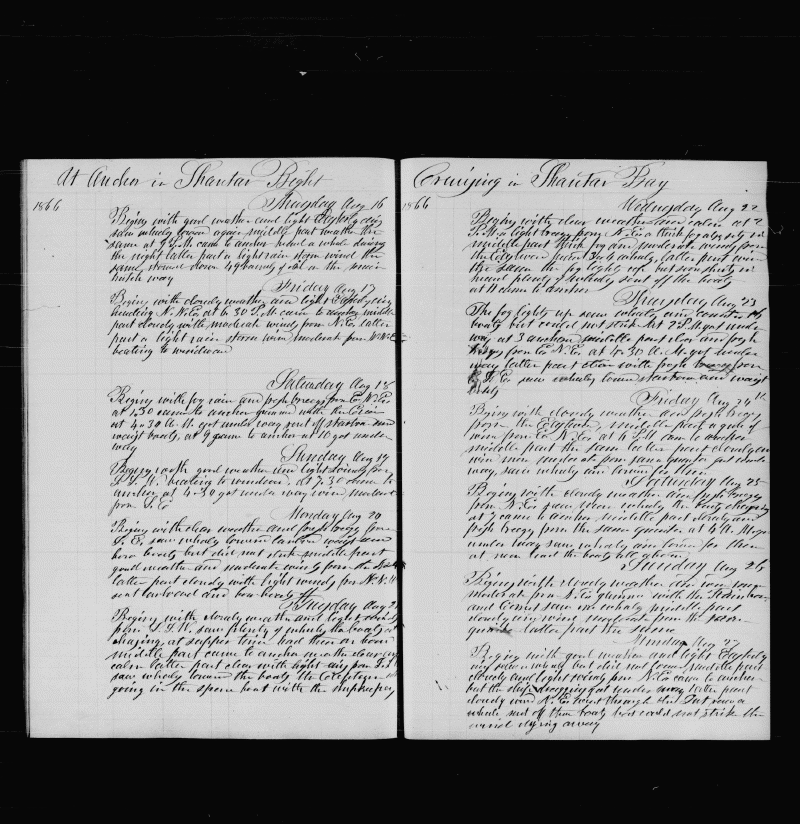 At Anchor in Shantar Bight
1866
Thursday Aug 16
Begins with good weather and light Easterly airs
saw whales lowered again middle part weather the
same at 9 P.M. came to anchor heard a whale during
the night latter part a light rain storm wind the
same, stowed down 49 barrels of oil in the main
hatch way
Friday Aug 17
Begins with cloudy weather and light Easterly airs
heading N.W. at 6 30 P.M. came to anchor middle
part cloudy with moderate winds from N.E. latter
part a light rain storm wind moderate from
beating to windward
Saturday Aug 18
Begins with fog rain and fresh breezes from E.N.E.
at 1.30 came to anchor gammed with the
at 4.30 A.M. got under way sent off starboard and
waist boats, at 9 came to anchor at 10 got under
way
Sunday Aug 19
Begins with good weather and light winds from
S.S.W. beating to windward. at 7.30 came to
anchor at 4.30 got under way wind moderate
from S.E.
Monday Aug 20
Begins with clear weather and fresh breezes from
S.E. saw whales lowered larboard waist and
bow boats but did not strike middle part
good weather and moderate winds from the
latter part cloudy with light winds from N.N.W.
sent larboard and bow boats off
Tuesday Aug 21
Begins with cloudy weather and light airs
from S.S.W. saw plenty of whales the boats
chasing, at supper time had them on board
middle part came to anchor weather clear and
calm latter part clear with light airs from
saw whales lowered the boats the
going in the spare boat with the shipkeepers
Cruising in Shantar Bay
1866
Wednesday Aug 22
Begins with clear weather and calm at 2
P.M. a light breeze from N.E. a thick fog
middle part thick fog and moderate winds from
the latter part
the same the fog
heard plenty of whales sent off the boats
at
Thursday Aug 23
The fog lights up seen whales and
boats but could not strike At 2 P.M. got under
way at 3 anchored middle part clear and fresh
breezes from E.N.E. at 4.30 A.M. got under
way latter part clear with fresh breezes from
N.E. saw whales lowered starboard and waist
boats
Friday Aug 24th
Begins with cloudy weather and fresh breezes
from the Eastward, middle part a gale of
wind from E.N.E. at 6 P.M. came to anchor
middle part the same latter part cloudy and
wind more moderate from same quarter got under
way, saw whales and lowered for them
Saturday Aug 25
Begins with cloudy weather and fresh breezes
from N.E. seen whales the boats chasing
at 7 came to anchor middle part cloudy and
fresh breezes from the same quarter at 4 A.M. got
under way saw whales and lowered for them
at noon had the boats all above
Sunday Aug 26
Begins with cloudy weather and wind
moderate from N.E. gammed with the
and Cornet saw one whale middle part
cloudy wind moderate from the same
quarter latter part the same
Monday Aug 27
Begins with good weather and light Easterly
airs saw a whale but did not lower middle part
cloudy and light winds from N.E. came to anchor
but the ship dragging got under way latter part
cloudy wind N.E. went through the saw a
whale sent off three boats but could not strike the
wind dying away